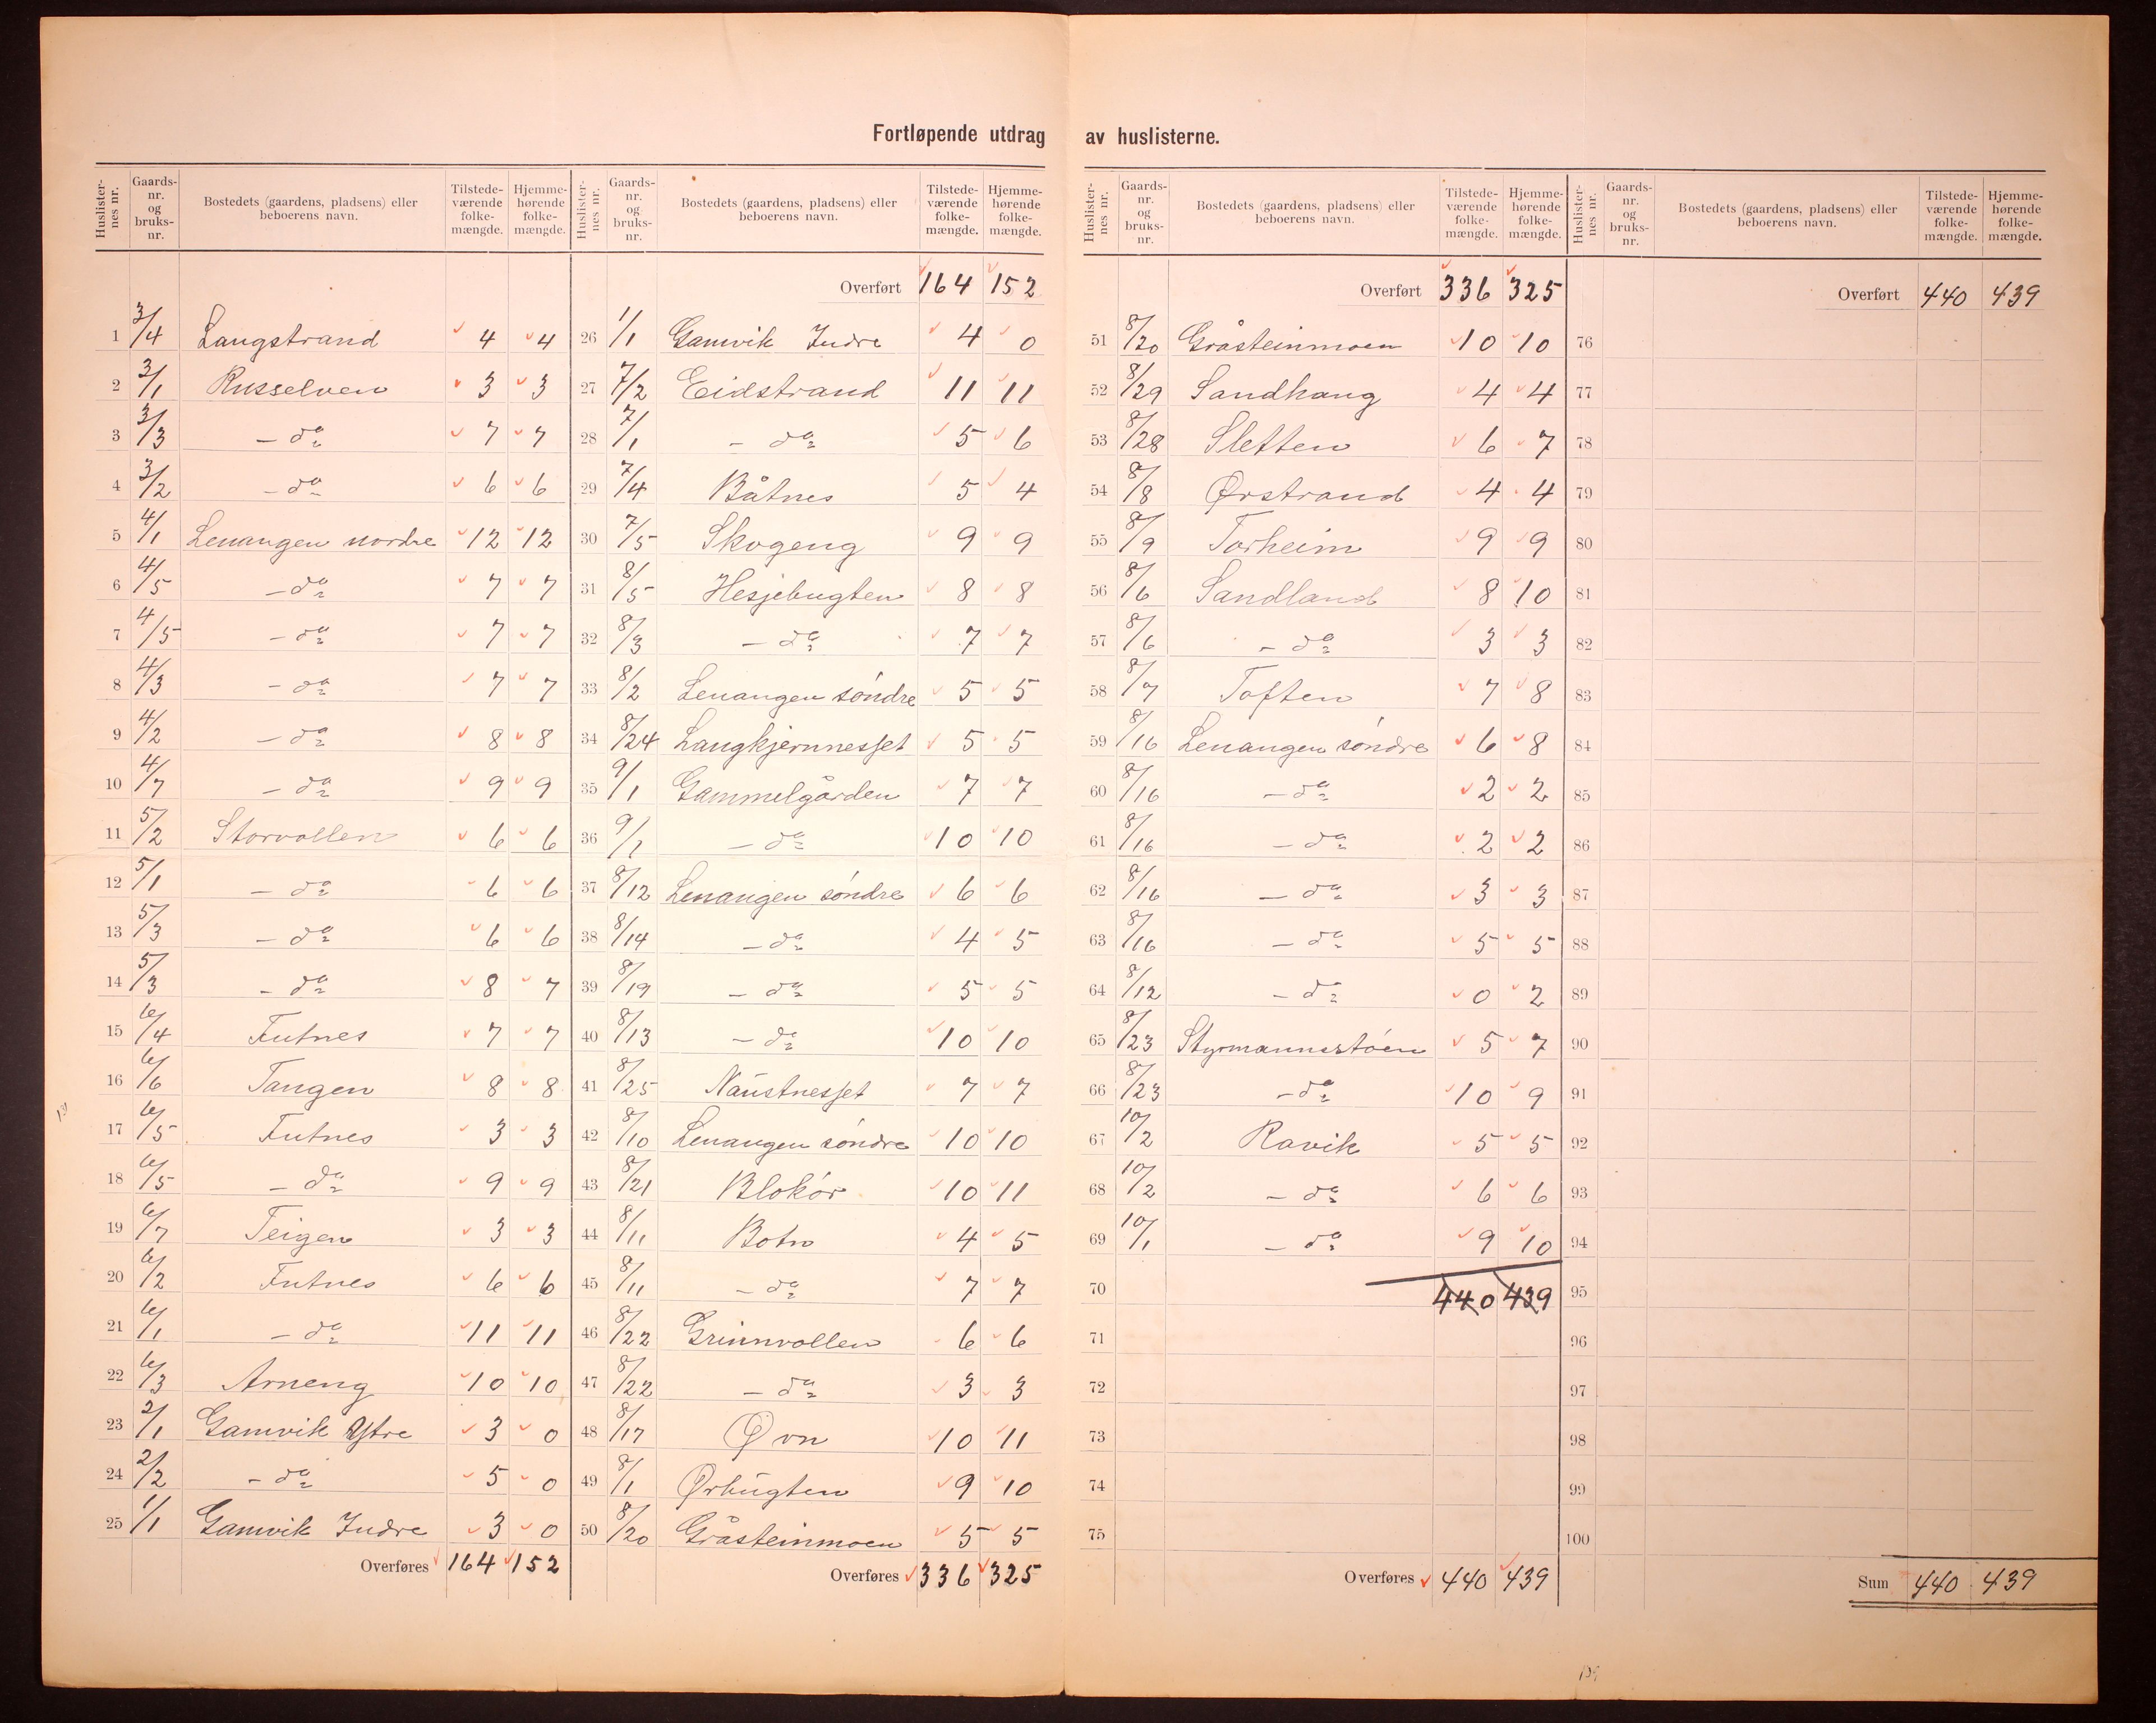 Fortløpende utdrag av huslisterne.
Huslisternes nr. | Gaards-nr. og bruks-nr. | Bostedets (gaardens, pladsens) eller beboerens navn. | Tilstedeværende folkemængde. | Hjemmehørende folkemængde.
1 3/4 Langstrand 4 4
2 3/1 Russelven 3 3
3 3/3 – do 7 7
4 3/2 – do 6 6
5 4/1 Lenangen nordre 12 12
6 4/5 – do 7 7
7 4/5 – do 7 7
8 4/3 – do 7 7
9 4/2 – do 8 8
10 4/7 – do 9 9
11 5/2 Storvollen 6 6
12 5/1 – do 6 6
13 5/3 – do 6 6
14 5/3 – do 8 7
15 6/4 Futnes 7 7
16 6/6 Tangen 8 8
17 6/5 Futnes 3 3
18 6/5 – do 9 9
19 6/7 Teigen 3 3
20 6/2 Futnes 6 6
21 6/1 – do 11 11
22 6/3 Arneng 10 10
23 2/1 Gamvik Ytre 3 0
24 2/2 – do 5 0
25 1/1 Gamvik Indre 3 0
Overføres 164 152
Huslisternes nr. | Gaards-nr. og bruks-nr. | Bostedets (gaardens, pladsens) eller beboerens navn. | Tilstedeværende folkemængde. | Hjemmehørende folkemængde.
Overført 164 152
26 1/1 Gamvik Indre 4 0
27 7/2 Eidstrand 11 11
28 7/1 – do 5 6
29 7/4 Båtnes 5 4
30 7/5 Skogeng 9 9
31 8/5 Hesjebugten 8 8
32 8/3 – do 7 7
33 8/2 Lenangen söndre 5 5
34 8/24 Langkjernnesset 5 5
35 9/1 Gammelgården 7 7
36 9/1 – do 10 10
37 8/12 Lenangen söndre 6 6
38 8/14 – do 4 5
39 8/19 – do 5 5
40 8/13 – do 10 10
41 8/25 Naustnesset 7 7
42 8/10 Lenangen söndre 10 10
43 8/21 Blokör 10 11
44 8/11 Botn 4 5
45 8/11 – do 7 7
46 8/22 Grinnvollen 6 6
47 8/22 – do 3 3
48 8/17 Øvn 10 11
49 8/1 Ørbugten 9 10
50 8/20 Gråsteinmoen 5 5
Overføres 336 325
Huslisternes nr. | Gaards-nr. og bruks-nr. | Bostedets (gaardens, pladsens) eller beboerens navn. | Tilstedeværende folkemængde. | Hjemmehørende folkemængde.
Overført 336 325
51 8/20 Gråsteinmoen 10 10
52 8/29 Sandhaug 4 4
53 8/28 Sletten 6 7
54 8/8 Ørstrand 4 4
55 8/9 Torheim 9 9
56 8/6 Sandland 8 10
57 8/6 – do 3 3
58 8/7 Toften 7 8
59 8/16 Lenangen söndre 6 8
60 8/16 – do 2 2
61 8/16 – do 2 2
62 8/16 – do 3 3
63 8/16 – do 5 5
64 8/12 – do 0 2
65 8/23 Styrmannstöen 5 7
66 8/23 – do 10 9
67 10/2 Ravik 5 5
68 10/2 – do 6 6
69 10/1 – do 9 10
70 440 439
71
72
73
74
75
Overføres 440 439
Huslisternes nr. | Gaards-nr. og bruks-nr. | Bostedets (gaardens, pladsens) eller beboerens navn. | Tilstedeværende folkemængde. | Hjemmehørende folkemængde.
Overført 440 439
76
77
78
79
80
81
82
83
84
85
86
87
88
89
90
91
92
93
94
95
96
97
98
99
100
Sum 440 439